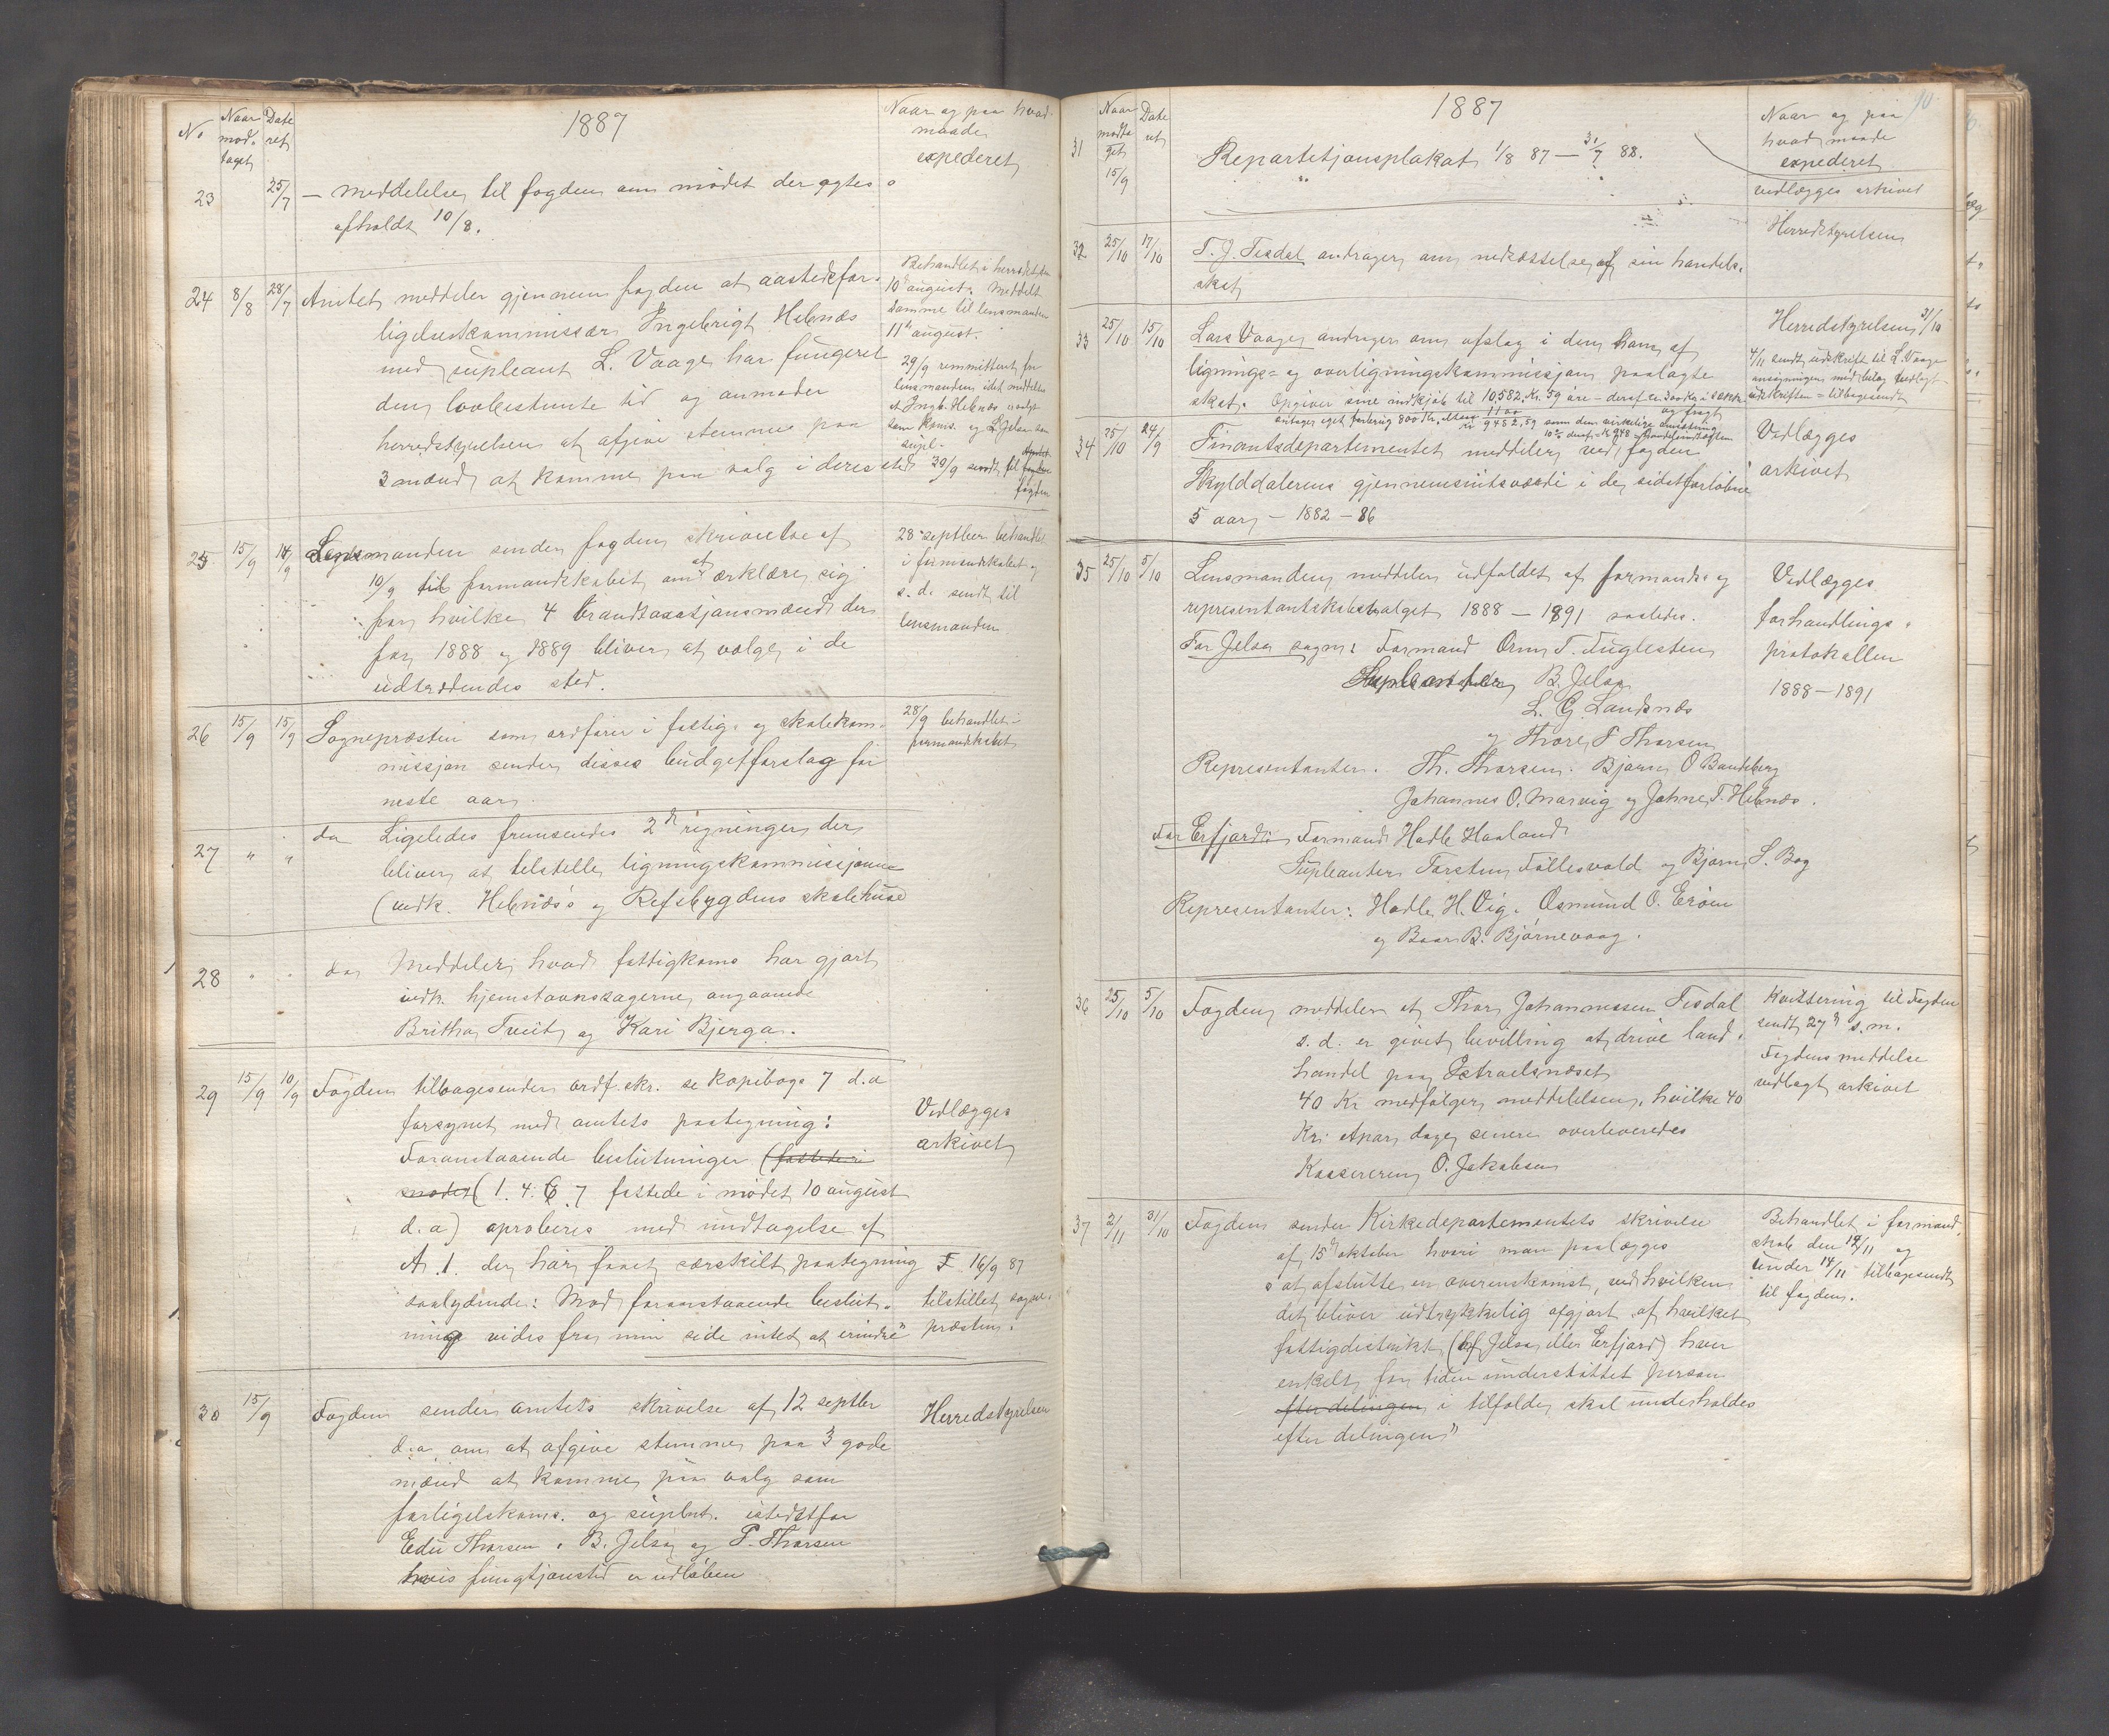 No
Naar
mod.
taget
Date
ret
1887
Naar og paa hvad
maade
expederet
23
25/7
– meddelelse til fogden om mødet der agtes
afholdt 10/8.
24
8/8
28/7
Amtet meddeler gjennem fogden at aastedsfor-
ligelseskommissær Ingebrigt Hebnæs
med supleant L. Vaage har fungeret
den lovbestemte tid og anmoder
herredstyrelsen at afgive stemme paa
3 mænd at komme paa valg i deres sted
Behandlet i herredst. den
10de august. Meddelt
samme til lensmanden
11te august.
29/9 remmitteret fra
lensmanden idet meddeles
at Ingb. Hebnæs valgt
som komis. og L. Jelsa som
supl.
30/9 sendt til
fogden
25
15/9
14/9
Lensmanden sender fogdens skrivelse af
10/9 til formandskabet om at erklære sig
for hvilke 4 brandtaxtsjonsmænd der
for 1888 og 1889 bliver at vælge i de
udtrædendes sted.
28 septber behandlet
i formandskabet og
s. d. sendt til
lensmanden
26
15/9
15/9
Sognepræsten som ordfører i fattig- og skolekom-
missjon sender disses budgetforslag for
neste aar.
28/9 behandlet i
formandskabet
27
"
"
do
Ligeledes fremsendes 2de regninger der
bliver at telstelle ligningskommissjonen
(vedk. Hebnæs's og Refsbygdens skolehuse
28
"
"
do
Meddeler hvad fattigkoms har gjort
vedk. hjemstavnssagerne angaaende
Britha Tveit og Kari Bjerga.
29
15/9
10/9
Fogden tilbagesender ordf. skr. se kopibog 7 d.a
forsynet med amtets paategning:
Foranstaaende beslutninger (fattede i
mødet (1. 4. 6 7 fattede i mødet 10 august
d. a) aproberes med undtagelse af
A. 1. der har faaet særskilt paategning
saalydende: Mod foranstaaende beslut-
ning vides fra min side intet at erindre"
Vedlægges
arkivet
16/9 87
tilstillet sogne-
præsten.
30
15/9
Fogden sender amtets skrivelse af 12 septber
d. a. om at afgive stemme paa 3 gode
mænd at komme paa valg som
forligelskoms. og suplnt. istedetfor
Edu Thorsen. B. Jelsa og P. Thorsen
hvis fungtjonstid er udløben
Herredstyrelsen
10.
31
Naar
modta
get
15/9
Date
ret
1887
Repartitjonsplakat 1/8 87 – 31/7 88.
Naar og paa
hvad maade
expederet
vedlægges arkivet
32
25/10
17/10
T. J. Tisdal andrager om nedsættelse af sin handels-
skat
Herredstyrelsen
33
25/10
15/10
Lars Vaage andrager om afslag i den ham af
lignings= og overligningskommissjon paalagte
skat. Opgiver sine indkjøb til 10,582. Kr. 59 øre – deraf ca. 300 Kr i
antager eget forbrug 800 Kr. 1100
Kr 9482,59 som den virkelige omsætning
Herredstyrelsen 31/10
4/11 sendt udskrift til L. Vaage
ansøgningen med bilag vedlagt
udskriften = tilbagesendt
34
25/10
24/9
Finantsdepartementet meddeler ved fogden
Skylddalerens gjennemsnitsværdi i de sidstforløbne
5 aar – 1882 – 86
Vedlægges
arkivet
35
25/10
5/10
Lensmanden meddeler udfaldet af formands- og
representantskabsvalget 1888 – 1891 saaledes.
For Jelsa sogn: Formand Orm T. Fuglesten
Supleanter B. Jelsa
L. G. Landsnæs
og Thore T Thorsen
Representanter. Th. Thorsen. Bjørn O Bandeberg
Johannes O. Marvig og Johne T. Hebnæs.
For Erfjord: Formand Hadle Haaland
Supleanter Torsten Føllesvold og Bjørn S. Bog
Representanter: Hadle H. Vig. Osmund O. Erøen
og Baar B. Bjørnevaag.
Vedlægges
forhandlings-
protokollen
1888 – 1891
36
25/10
5/10
Fogden meddeler at Thor Johannessen Tisdal
s. d. er givet bevilling at drive land-
handel paa Petraelsnæset
40 Kr medfølger meddelelsen, hvilke 40
Kr. apar dage senere overleveredes
Kassereren O. Jakobsen
Kvittering til Fogden
sendt 27de s. m.
Fogdens meddelse
vedlagt arkivet
37
2/11
31/10
Fogden sender Kirkedepartementets skrivelse
af 15de oktober hvori man paalægges
at afslutte en overenskomst, ved hvilken
det bliver udtrykkelig afgjort af hvilket
fattigdistrikt (af Jelsa eller Erfjord) hver
enkelt for tiden understøttet person
efter delingen i tilfælde skal underholdes
efter delingen"
Behandlet i formand-
skab den 12/11 og
under 14/11 tilbagesendt
til fogden.